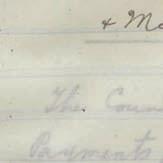 & Mc
The Coun
Payments